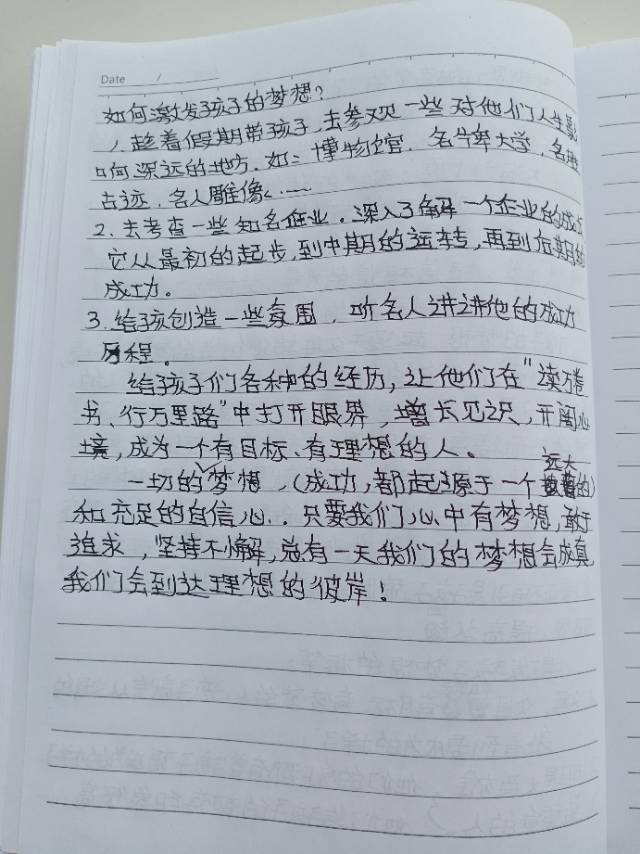 Date /
如何激发孩子的梦想？
1. 趁着假期带孩子，去参观一些对他们人生影
响深远的地方，如：博物馆、名牌大学，名胜
古迹，名人雕像……
2. 去考查一些知名企业，深入了解一个企业的成
它从最初的起步，到中期的运转，再到后期的
成功。
3. 给孩创造一些氛围，听名人讲讲他的成功
历程。
给孩子们各种的经历，让他们在“读万卷
书、行万里路”中打开眼界，增长见识，开阔心
境，成为一个有目标、有理想的人。
一切的梦想，（成功，都起源于一个远大的）
和充足的自信心.. 只要我们心中有梦想，敢于
追求，坚持不懈，总有一天我们的梦想会成真，
我们会到达理想的彼岸！